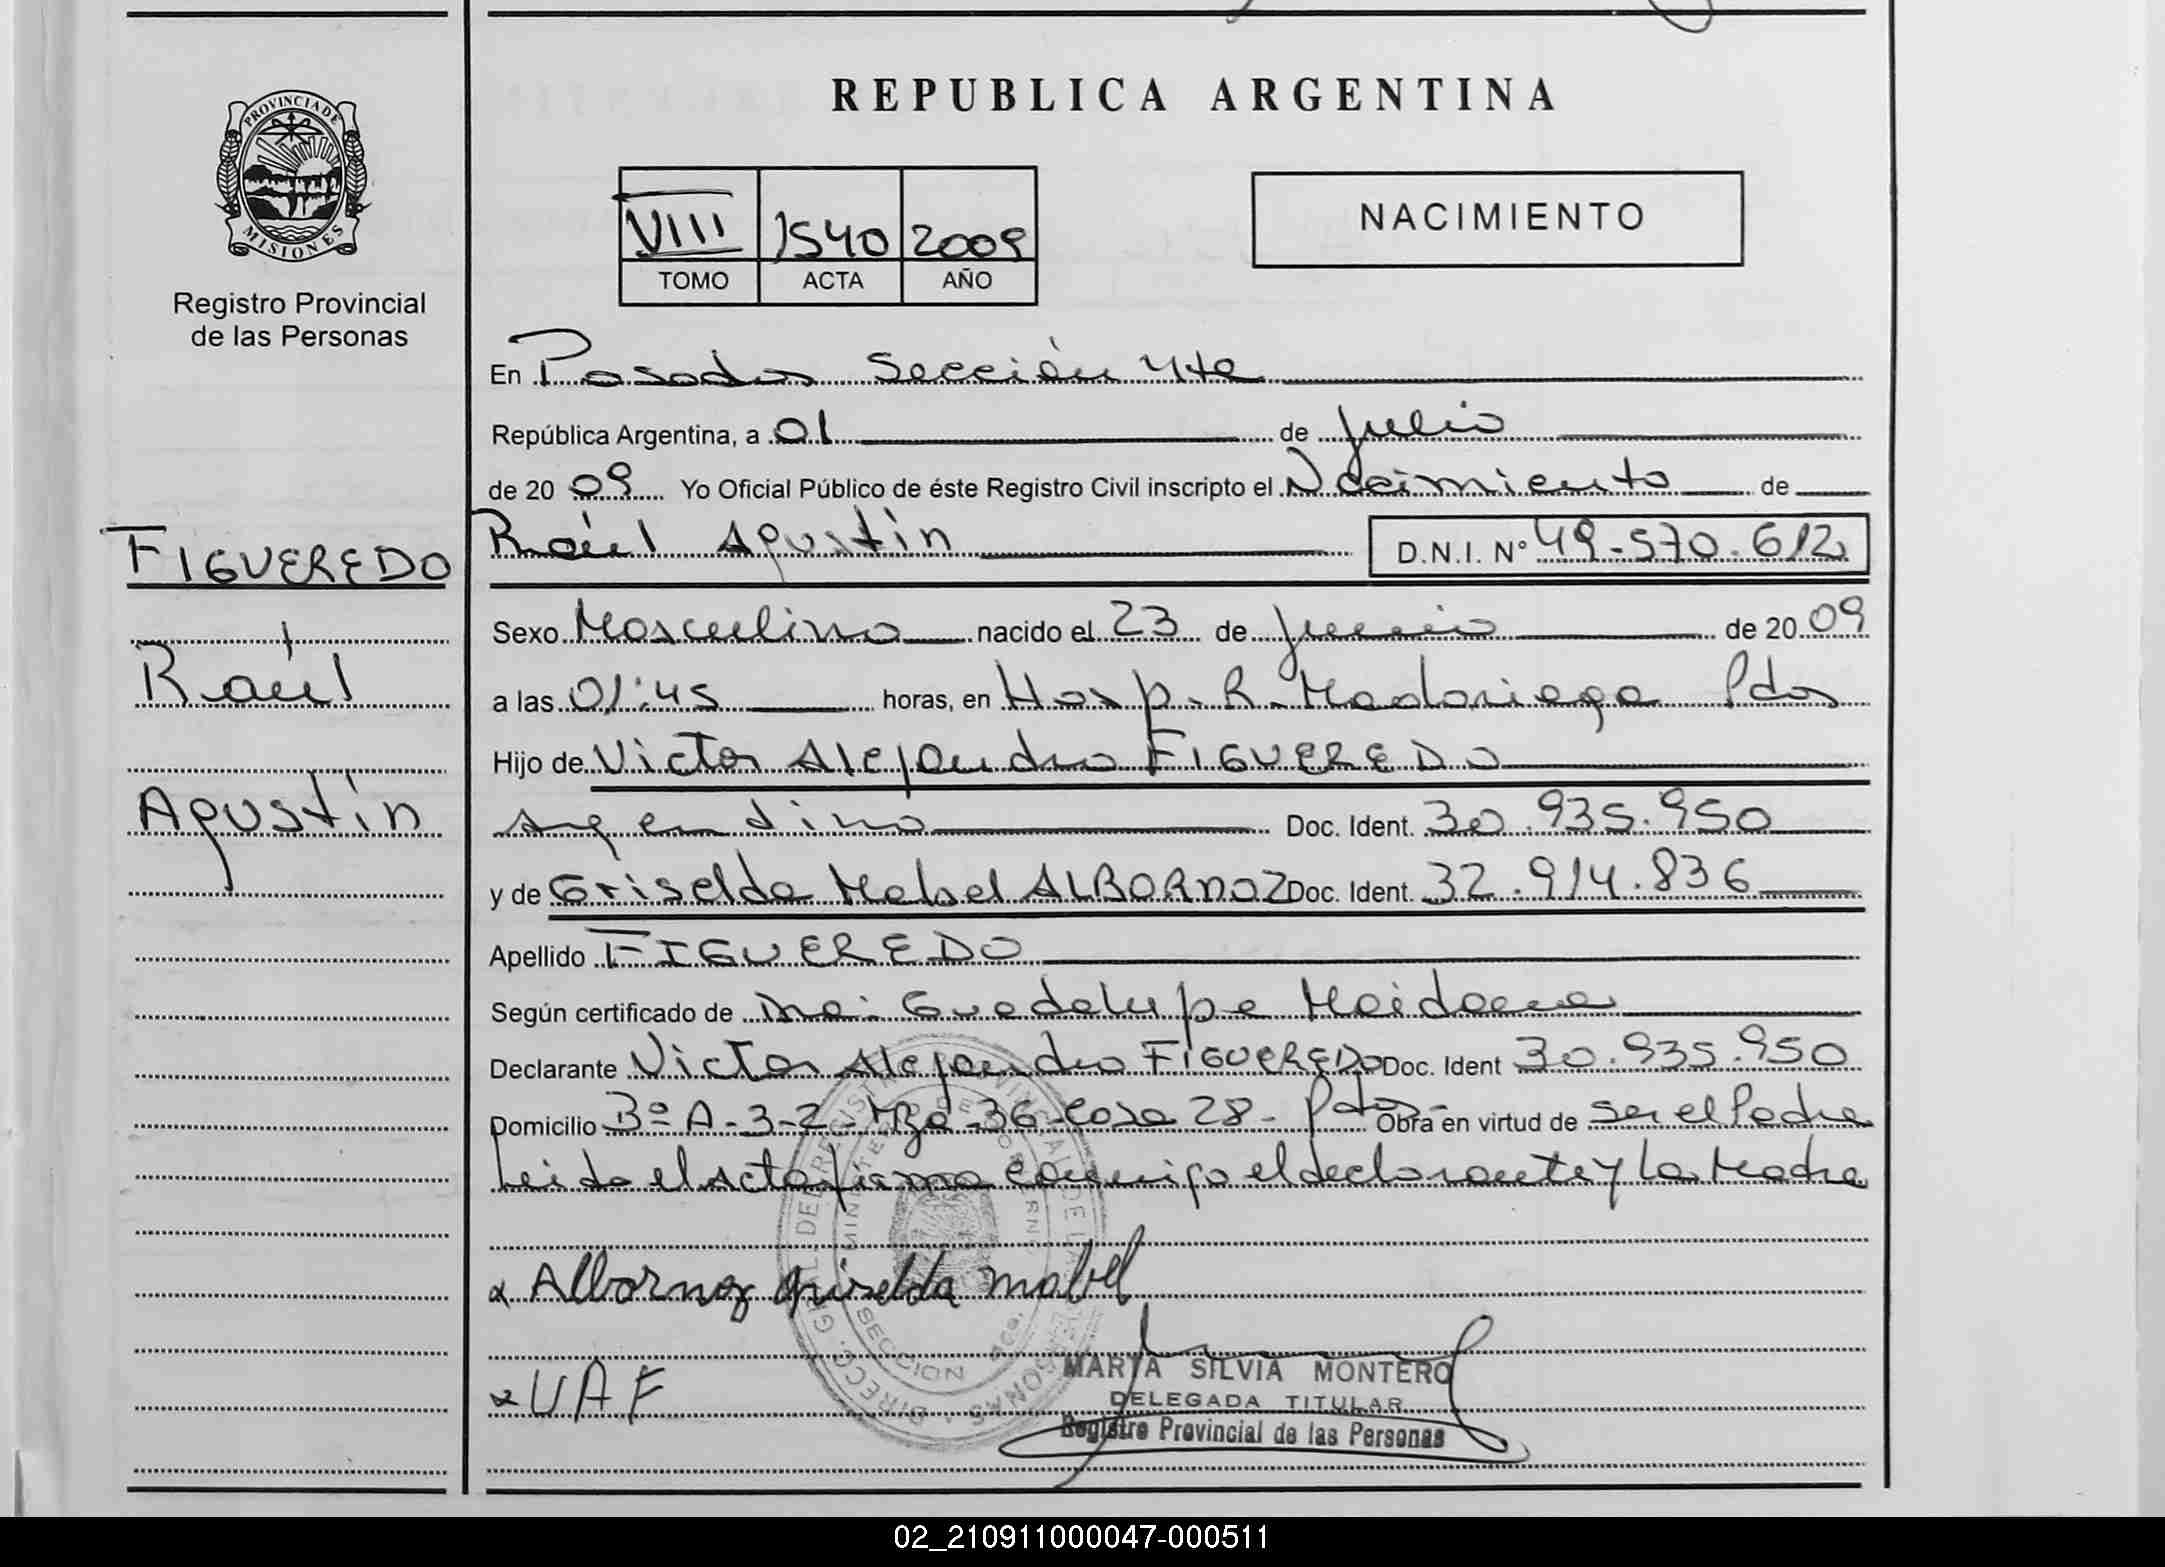 REPUBLICA ARGENTINA
PROVINCIA DE
MISIONES
Registro Provincial
de las Personas
VIII 1540 2009
TOMO ACTA AÑO
NACIMIENTO
En Posadas Sección 4ta
República Argentina, a 01 de julio
de 2009 Yo Oficial Público de éste Registro Civil inscripto el Nacimiento de
Raúl Agustín D.N.I. Nº 49.570.612
FIGUEREDO
Raúl
Agustín
Sexo Masculino nacido el 23 de junio de 2009
a las 01:45 horas, en Hosp. R. Madariaga Pdas
Hijo de Victor Alejandro FIGUEREDO
argentino Doc. Ident. 30.935.950
y de Griselda Mabel ALBORNOZ Doc. Ident. 32.914.836
Apellido FIGUEREDO
Según certificado de Dra. Guadalupe Maidana
Declarante Victor Alejandro FIGUEREDO Doc. Ident 30.935.950
Domicilio Bº A-3-2-Mza-36-Casa 28-Pdas- Obra en virtud de ser el Padre
Leida el Acta firma conmigo el declarante y la Madre
Albornoz Griselda Mabel
VAF
MARTA SILVIA MONTERO
DELEGADA TITULAR
Registro Provincial de las Personas
02_210911000047-000511